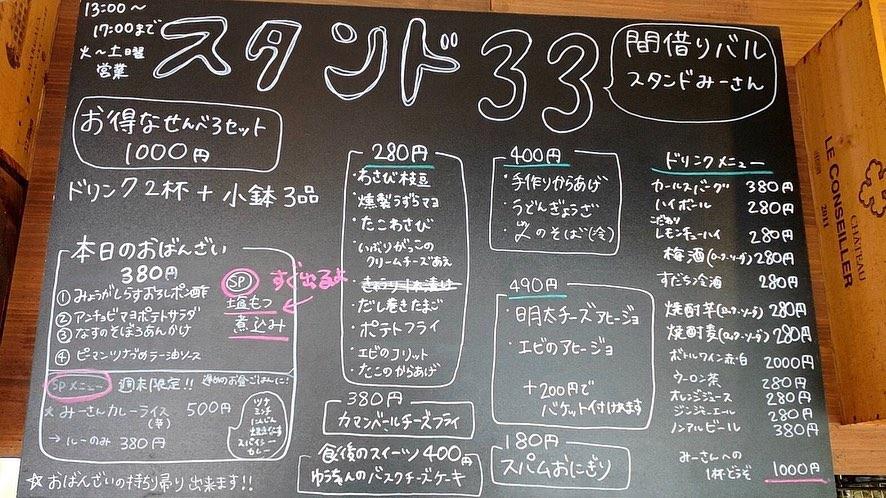 13:00〜
17:00まで
火〜土曜
営業
スタンド33
間借りバル
スタンドみーさん
お得なせんべろセット
1000円
ドリンク2杯+小鉢3品
本日のおばんざい
380円
①みょうがしらすおろしポン酢
②アンチョビマヨポテトサラダ
③なすのそぼろあんかけ
④ピーマンツナがめラー油ソース
SP すぐ出るよ
塩もつ
煮込み
SPメニュー 週末限定!! 遅めのお昼ごはんに!
みーさんカレーライス 500円
(辛)
→ルーのみ 380円
ツナ
ミンチ
にんじん
スパイシー
カレー
☆おばんざいの持ち帰り出来ます!!
280円
・わさび枝豆
・燻製うずらマヨ
・たこわさび
・いぶりがっこの
クリームチーズあえ
・きゅうり一本漬け
・だし巻きたまご
・ポテトフライ
・エビのフリット
・たこのからあげ
380円
カマンベールチーズフライ
食後のスイーツ 400円
ゆうちゃんのバスクチーズケーキ
400円
・手作りからあげ
・うどんぎょうざ
・〆のそば(冷)
490円
・明太チーズアヒージョ
・エビのアヒージョ
+200円で
バケット付けれます
180円
スパムおにぎり
ドリンクメニュー
カールスバーグ 380円
ハイボール 280円
こだわり
レモンチューハイ 280円
梅酒(ロック・ソーダ) 280円
すだち冷酒 280円
焼酎芋(ロック・ソーダ) 280円
焼酎麦(ロック・ソーダ) 280円
ボトルワイン赤・白 2000円
ウーロン茶 280円
オレンジジュース 280円
ジンジャーエール 280円
ノンアルビール 380円
みーさんへの
1杯どうぞ 1000円
LE CONSEILLER
2011
CHÂTEAU